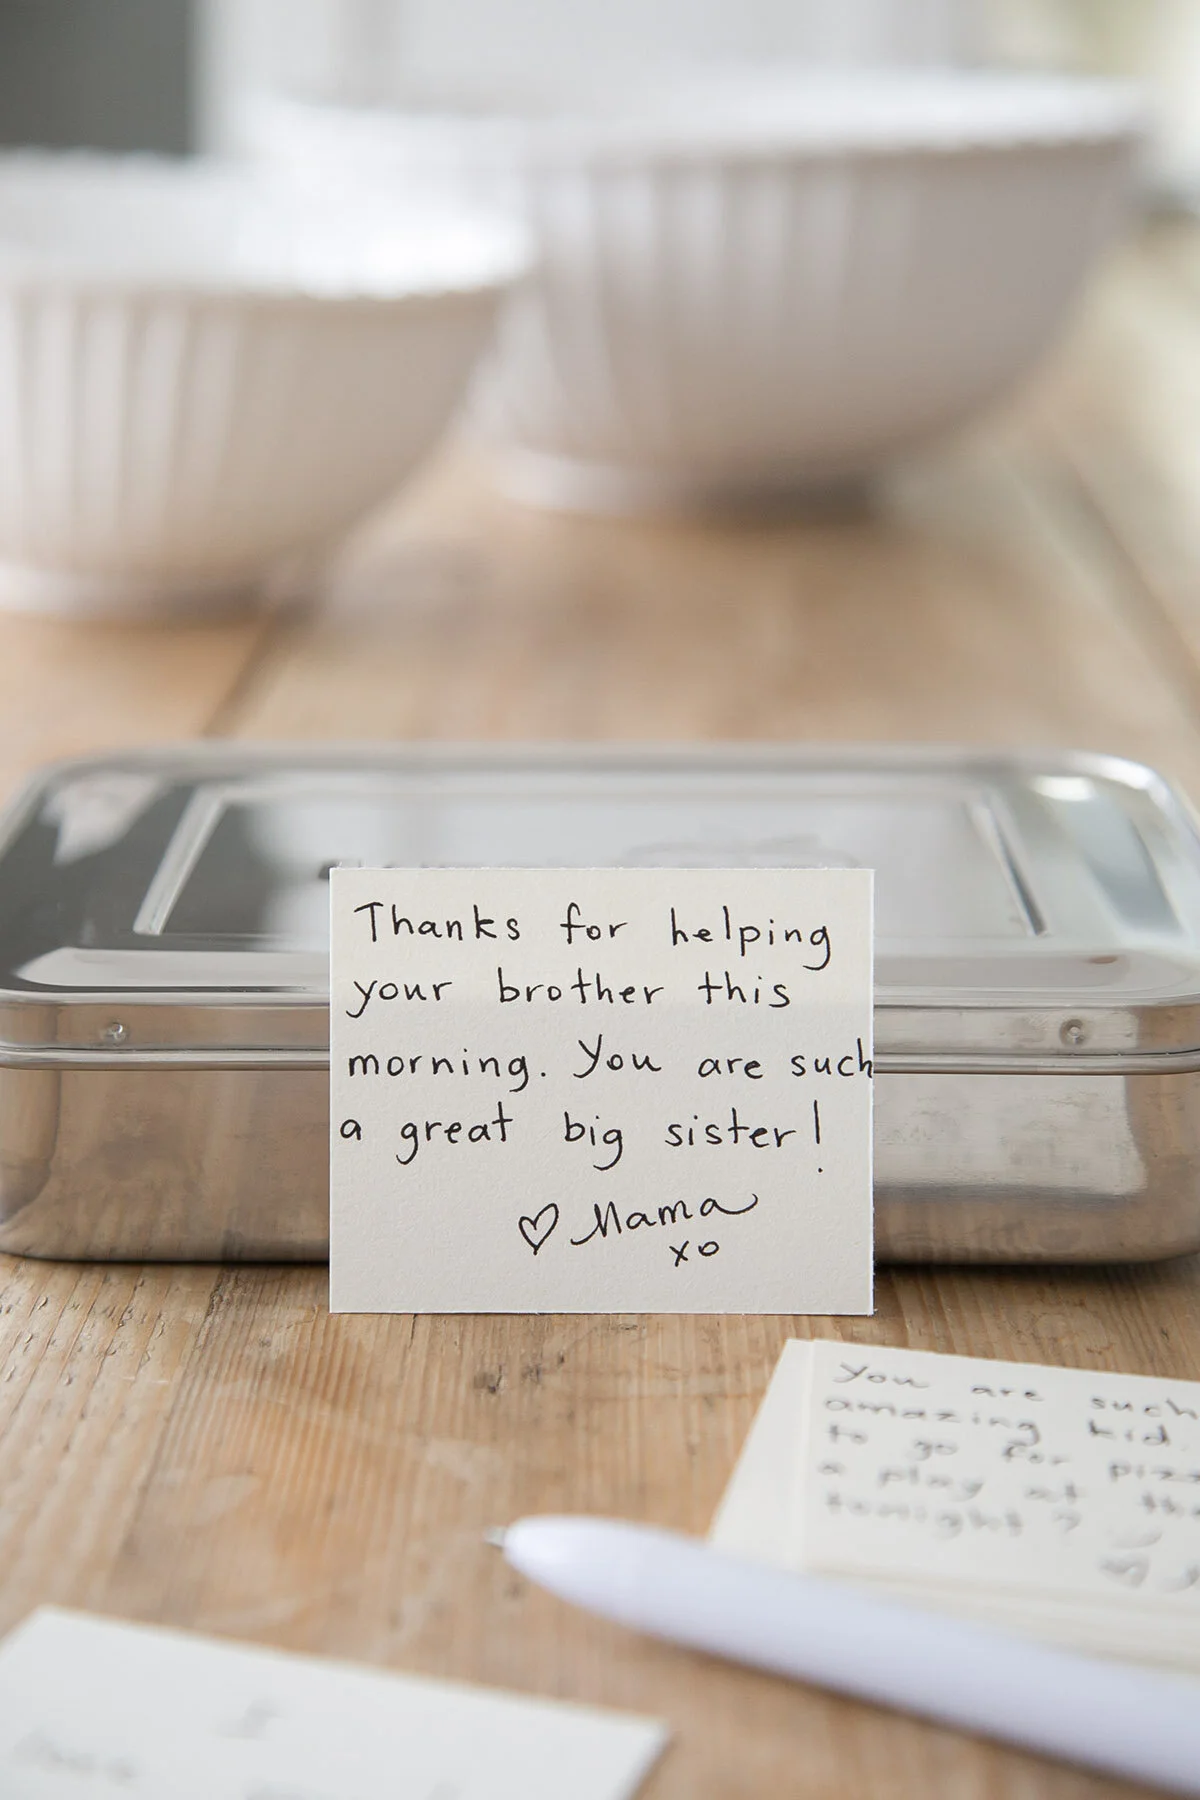 Thanks for helping
your brother this
morning. You are such
a great big sister!
♡ Mama
xo
You are such
amazing kid.
to go for
a play at
tonight?